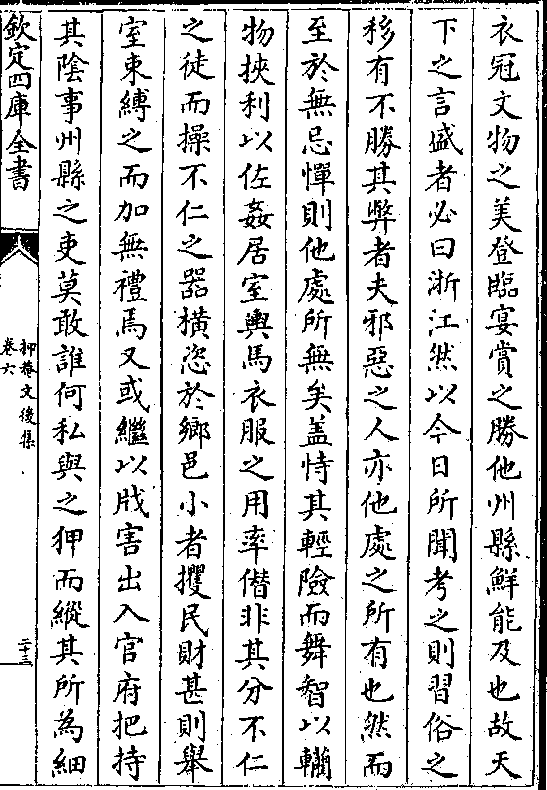 衣冠文物之美登臨宴賞之勝他州縣鮮能及也故天
下之言盛者必曰浙江然以今日所聞考之則習俗之
移有不勝其弊者夫邪惡之人亦他處之所有也然而
至於無忌憚則他處所無矣盖恃其輕險而舞智以轥
物挾利以佐姦居室輿馬衣服之用率僭非其分不仁
之徒而操不仁之器橫恣於鄉邑小者攫民財甚則舉
室束縛之而加無禮焉又或繼以戕害出入官府把持
其陰事州縣之吏莫敢誰何私與之狎而縱其所為細
欽定四庫全書
抑菴文後集
卷六
二十三